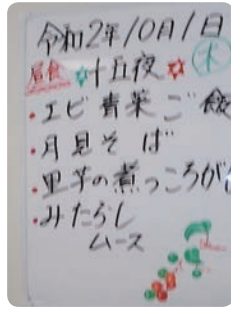 令和2年10月1日
木
昼食 十五夜
・エビ青菜ご飯
・月見そば
・里芋の煮っころがし
・みたらし
ムース